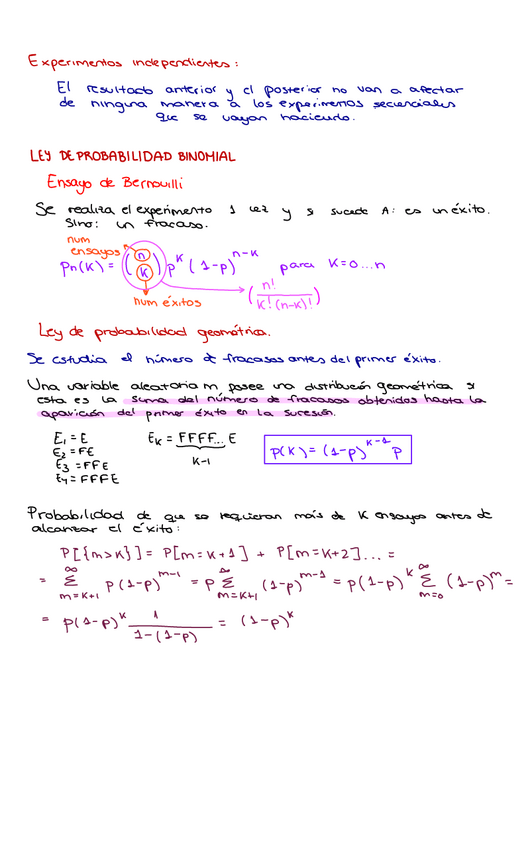 Experimentos independientes:
El resultado anterior y el posterior no van a afectar
de ninguna manera a los experimentos secuenciales
que se vayan haciendo.
LEY DE PROBABILIDAD BINOMIAL
Ensayo de Bernouilli
Se realiza el experimento 1 vez y si sucede A: es un éxito.
Sino: un fracaso.
num
ensayos
Pn(K) = (n K) p^K (1-p)^n-K para K=0...n
(n! / K!(n-K)!)
num éxitos
Ley de probabilidad geométrica.
Se estudia el número de fracasos antes del primer éxito.
Una variable aleatoria m posee una distribución geométrica si
esta es la suma del número de fracasos obtenidos hasta la
aparición del primer éxito en la sucesión.
E₁ = E
E₂ = FE
E₃ = FFE
E₄ = FFFE
E_K = FFFF... E
K-1
p(K) = (1-p)^K-1 p
Probabilidad de que se requieran más de K ensayos antes de
alcanzar el éxito:
P[{m>K}] = P[m=K+1] + P[m=K+2]... =
= ∞ Σ m=K+1 p(1-p)^m-1 = p ∞ Σ m=K+1 (1-p)^m-1 = p(1-p)^K ∞ Σ m=0 (1-p)^m =
= p(1-p)^K 1 / 1-(1-p) = (1-p)^K